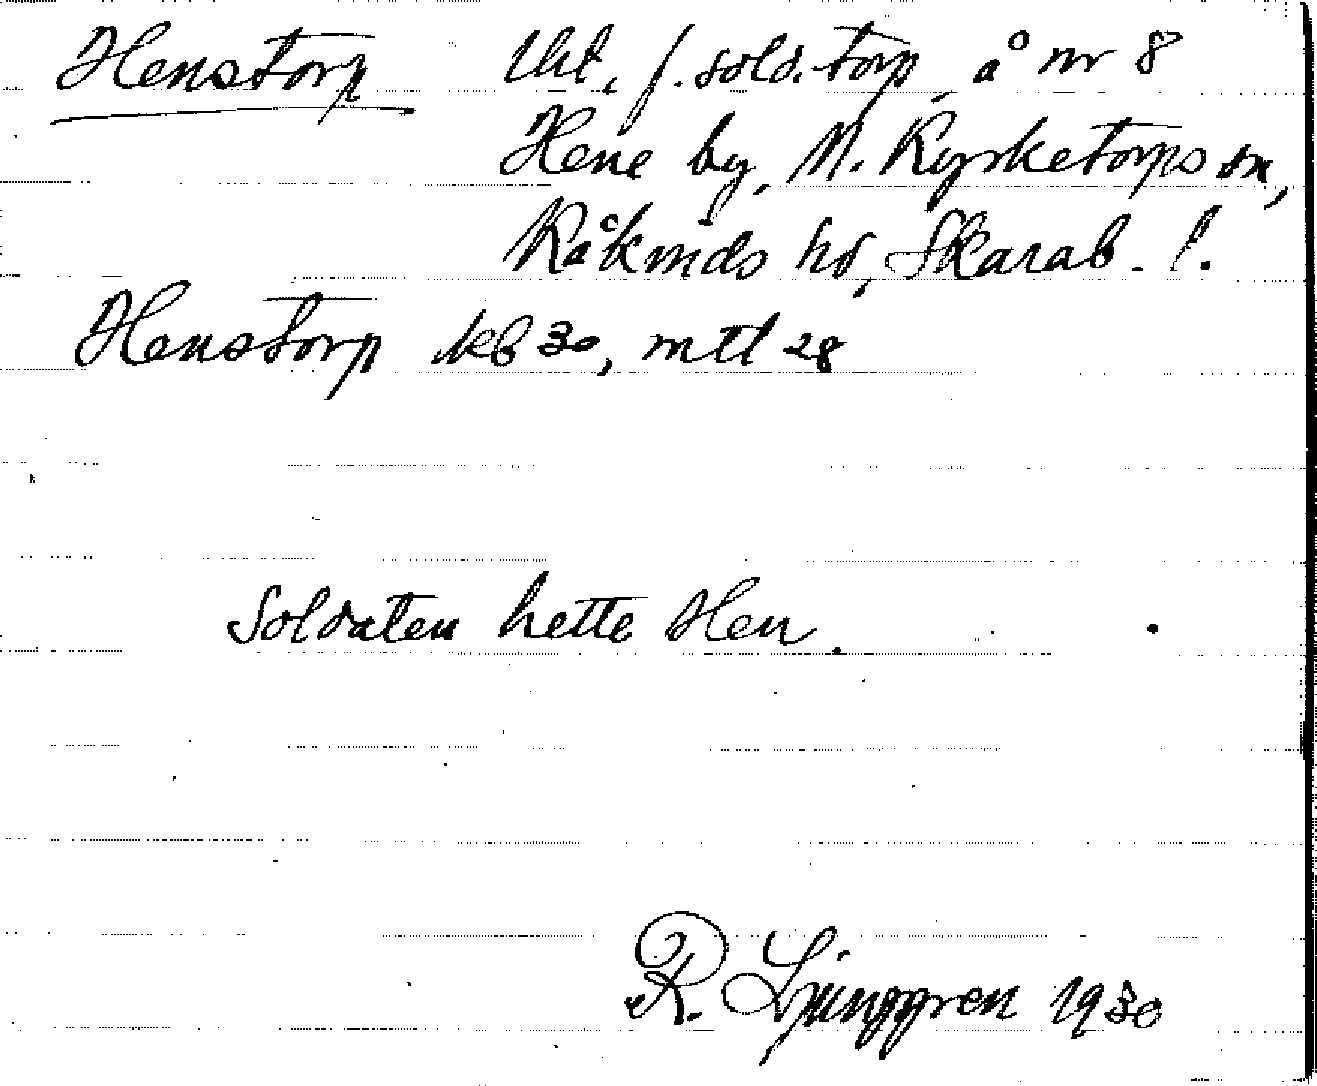 Henstorp Utt, f. sold. torp, å nr 8
Hene by, N. Kyrketorps sn,
Kåkinds hd, Skarab. l.
Henstorp kb 30, mtl 28
Soldaten hette Hen.
R. Ljunggren 1930